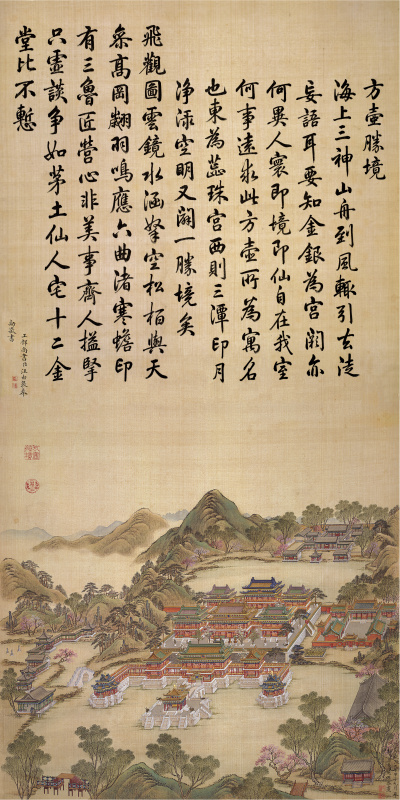 方壺勝境
海上三神山舟到風輒引去徒
妄語耳要知金銀為宮闕亦
何異人寰即境即仙自在我室
何事遠求此方壺所為寓名
也東為蕊珠宮西則三潭印月
淨淥空明又闢一勝境矣
飛觀圖雲鏡水涵拏空松栢與天
叅高岡翽羽鳴應六曲渚寒蟾印
有三魯匠營心非美事齊人搤掔
只虛談爭如茅土仙人宅十二金
堂比不慙
工部尚書臣汪由敦奉
勅敬書